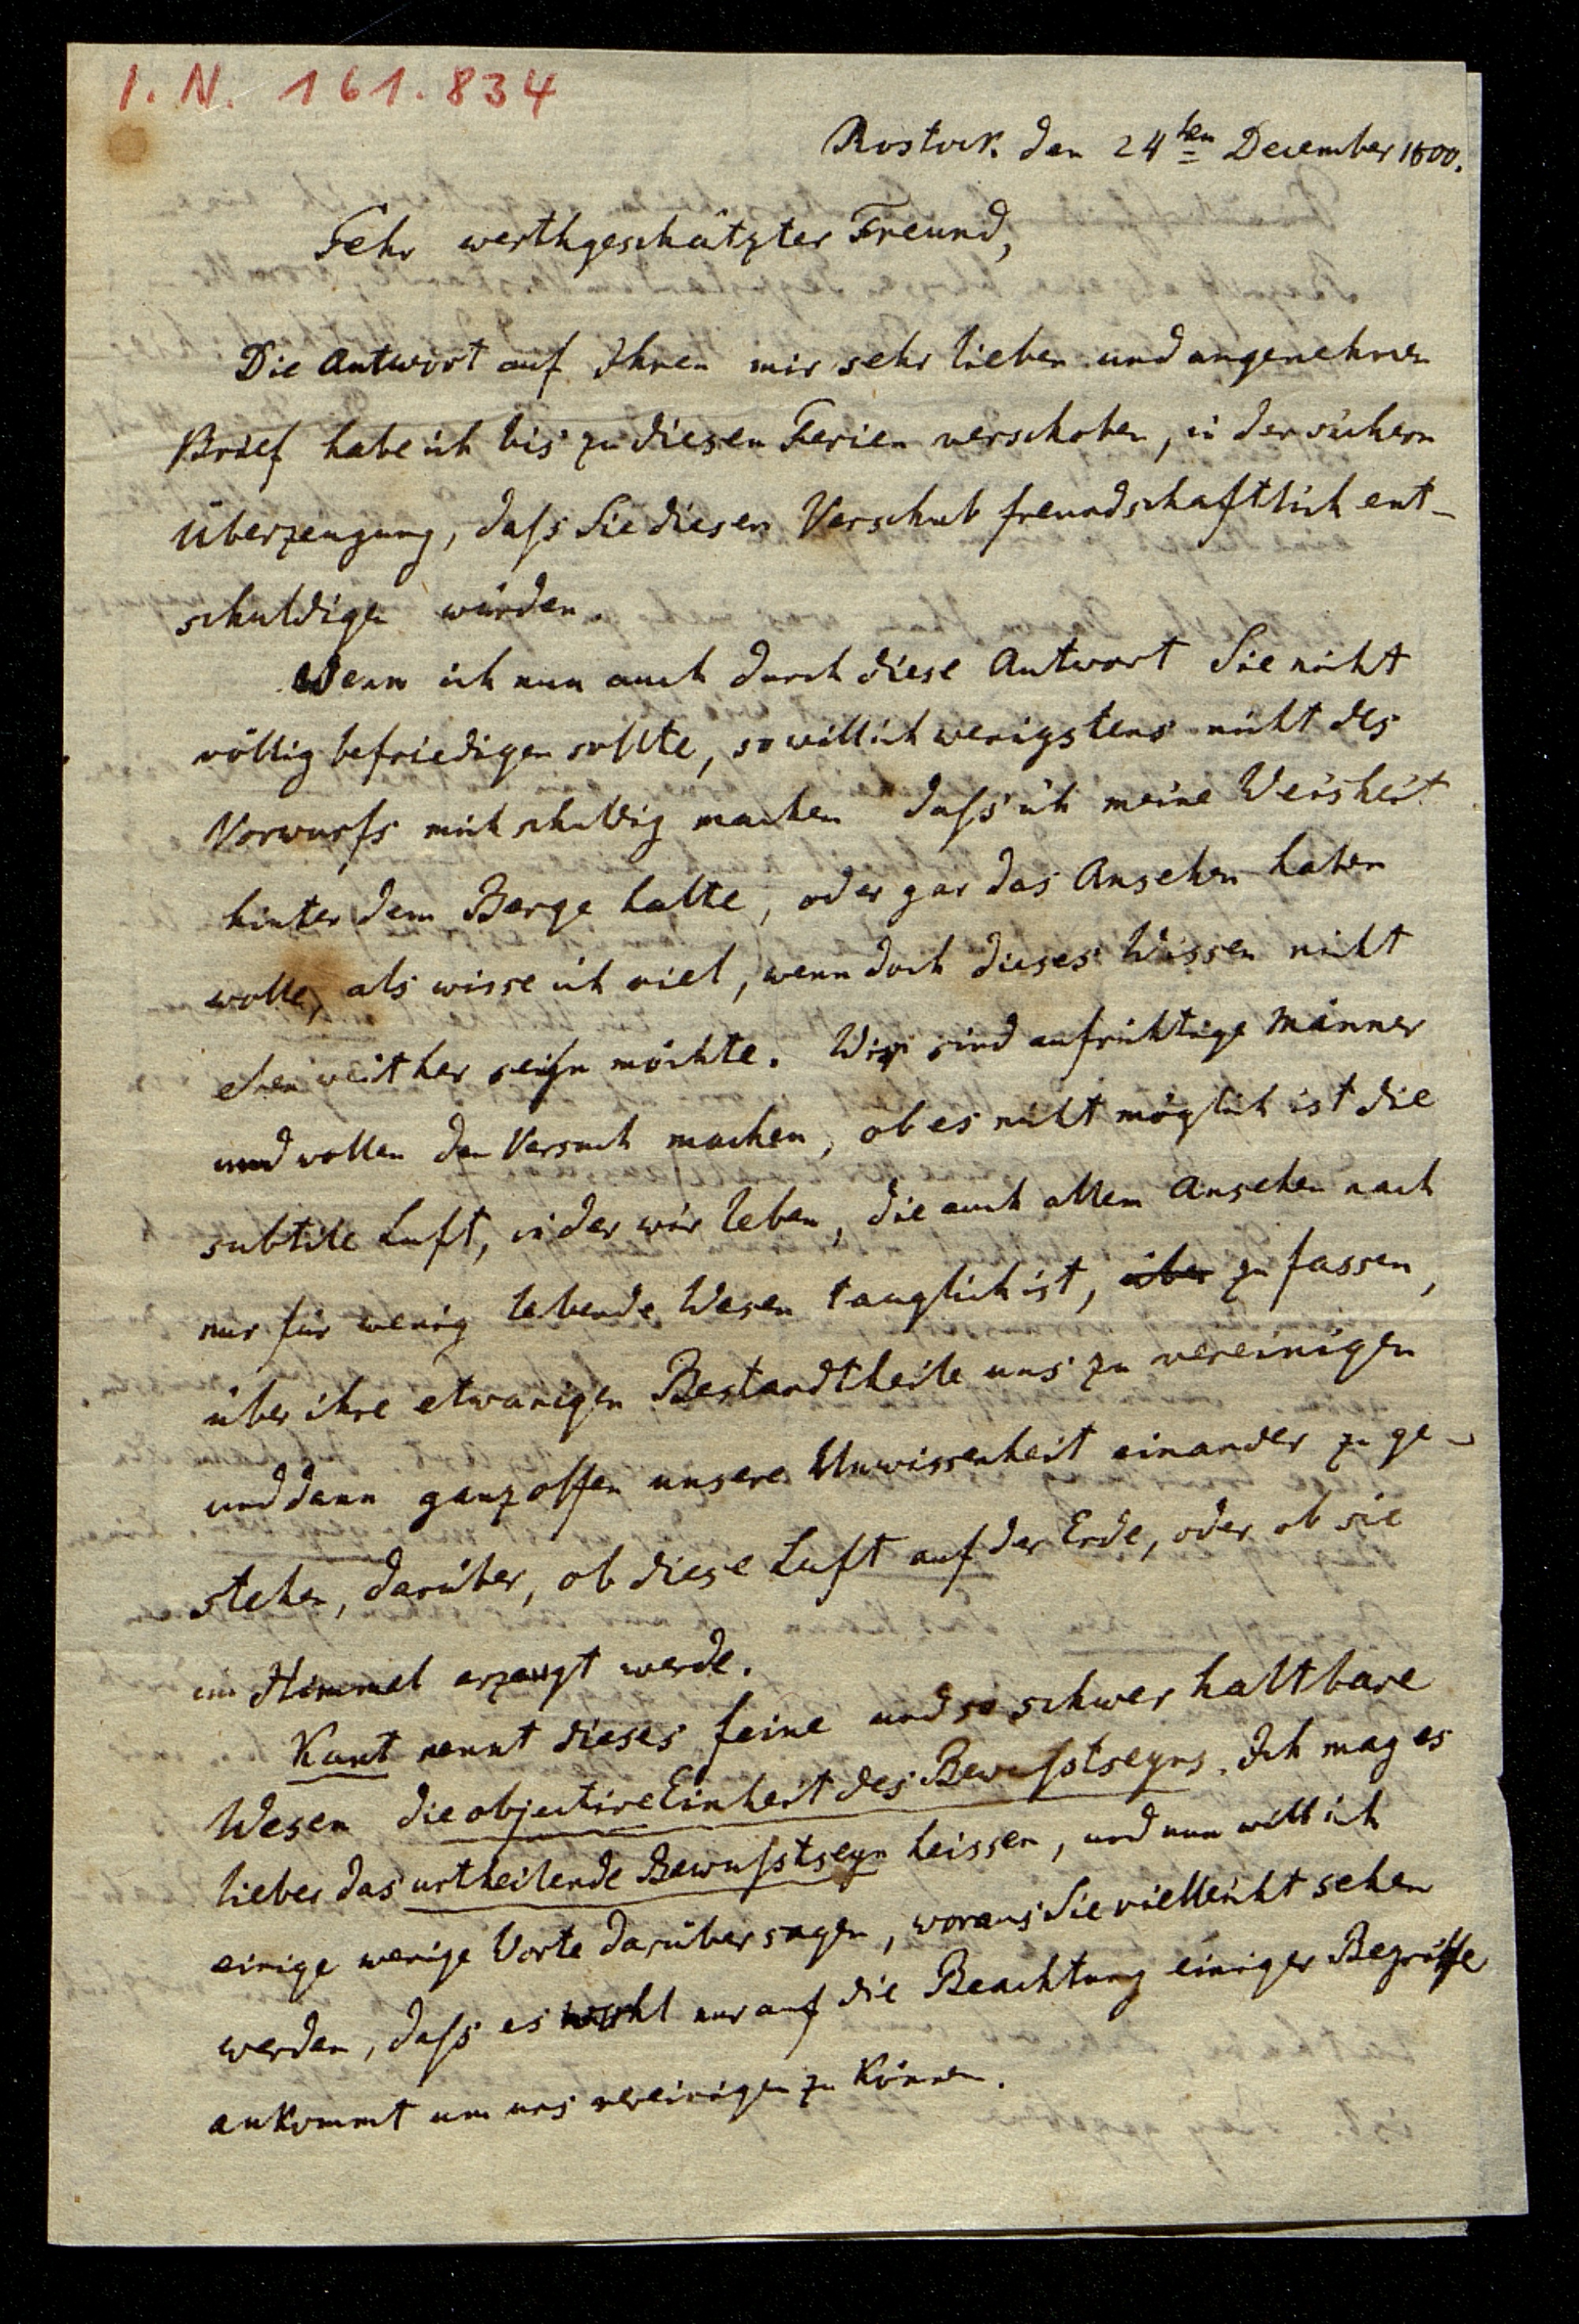 I. N. 161.834
Rostock. den 24ten December 1800.
Sehr werthgeschätzter Freund,
Die Antwort auf Ihren mir sehr lieben und angenehmen
Brief habe ich bis zu diesen Ferien verschoben, in der sichern
Überzeugung, daſs Sie diesen Verschub freundschaftlich ent-
schuldigen würden.
Wenn ich nun auch durch diese Antwort Sie nicht
völlig befriedigen sollte, so will ich wenigstens nicht des
Vorwurfs mich schuldig machen daſs ich meine Weisheit
hinter dem Berge halte, oder gar das Ansehen haben
wolle, als wisse ich viel, wenn doch dieses Wissen nicht
eben weit her seyn möchte. Wir sind aufrichtige Männer
und wollen den Versuch machen, ob es nicht möglich ist die
subtile Luft, in der wir leben, die auch allem Ansehen nach
nur für wenig lebende Wesen tauglich ist, über zu fassen,
über ihre etwanigen Bestandtheile uns zu vereinigen
und dann ganz offen unsere Unwissenheit einander zu ge-
stehen, darüber, ob diese Luft auf der Erde, oder ob sie
im Himmel erzeugt werde.
Kant nennt dieses feine und so schwer haltbare
Wesen die objective Einheit des Bewuſstseyns. Ich mag es
lieber das urtheilende Bewuſstseyn heissen, und nun will ich
einige wenige Worte darüber sagen, woraus Sie vielleicht sehen
werden, daſs es wohl nur auf die Beachtung einiger Begriffe
ankommt um uns vereinigen zu können.